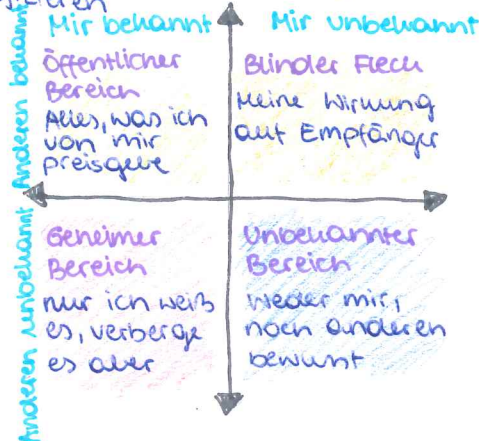 Mir bekannt
Mir unbekannt
Anderen bekannt
Öffentlicher
Bereich
Alles, was ich
von mir
preisgebe
Blinder Fleck
Meine Wirkung
auf Empfänger
Anderen unbekannt
Geheimer
Bereich
nur ich weiß
es, verberge
es aber
Unbekannter
Bereich
Weder mir,
noch anderen
bewusst